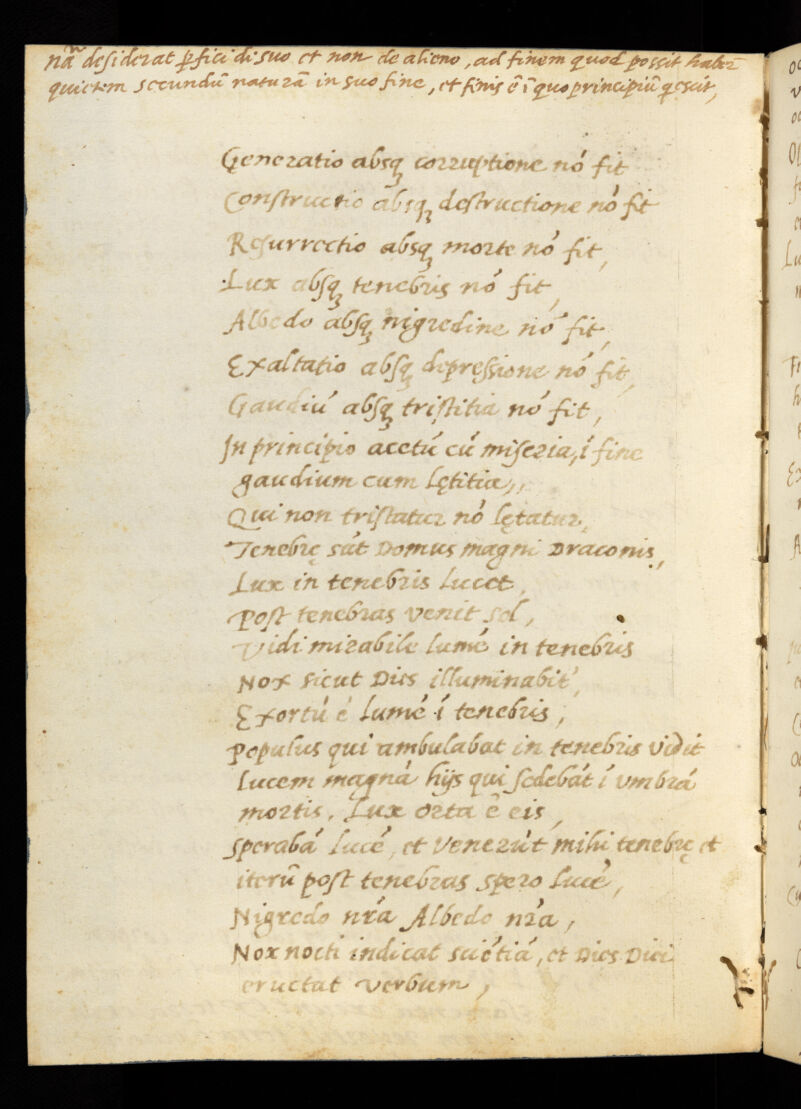 nã desiderat ꝑfici di suo et non de alieno, ad finem quod possit haber
quietem secundũ naturã in suo fine, et finis ẽ ĩ quo principiũ qescit,
Generatio absqꝫ corruptione nõ fit
Constructio absqꝫ destructione nõ fit
Resurrectio absqꝫ morte nõ fit,
Lux absqꝫ tenebris nõ fit,
Albedo absqꝫ nigredine nõ fit,
Exaltatio absqꝫ depressione nõ fit,
Gaudiũ absqꝫ tristitia nõ fit,
In principio acetũ cũ miseria, ĩ fine
gaudium cum lętitia,,
Qui non tristatur nõ lętatur,
Tenebrę sãt Domus magni Draconis,
Lux in tenebris lucet,
Post tenebras venit sol,
Vidi mirabile lumẽ in tenebris
Nox sicut Dies illuminabit',
Exortũ ẽ lumẽ ĩ tenebris,
Populus qui ambulabat in tenebris vidit
lucem magnã hijs qui sedebãt ĩ vmbrã
mortis. Lux orta ẽ eis,
sperabã lucẽ, et venerũt mihi tenebrę et
iterũ post tenebras spero lucẽ,
Nigredo nr̃a Albedo nr̃a,
Nox nocti indicat sciẽtiã, et Dies Diei
eructat verbum,